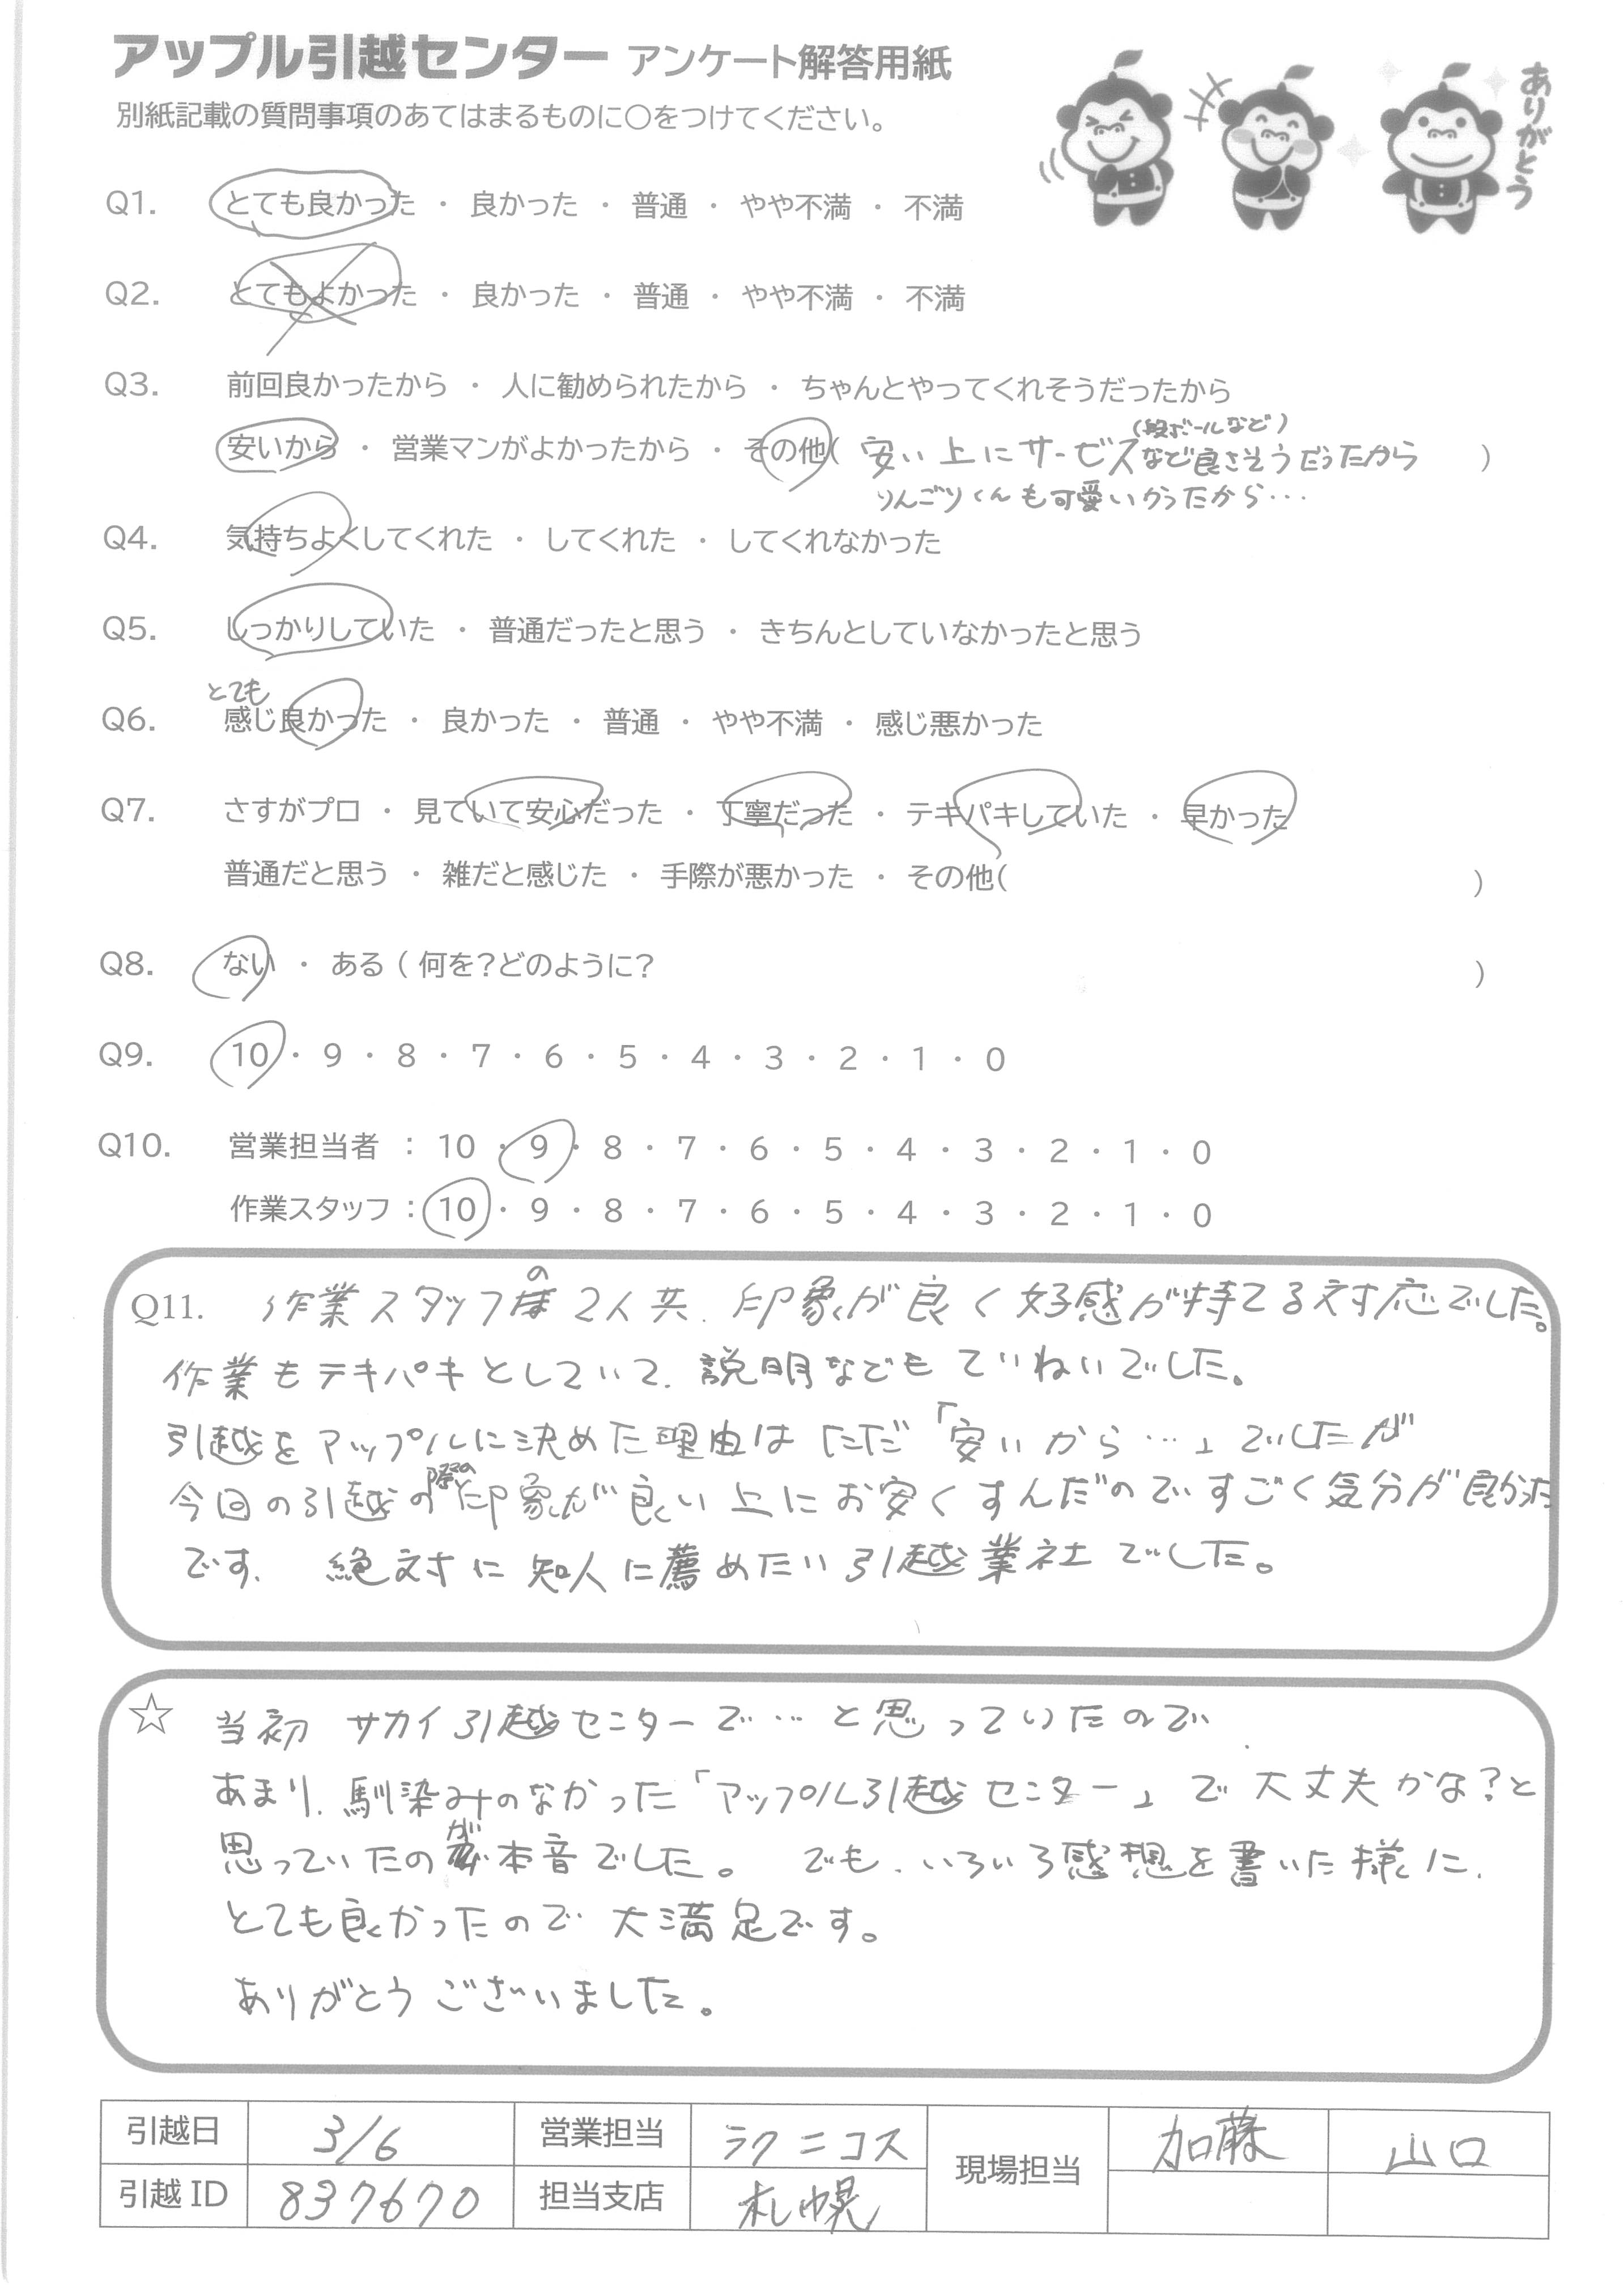 アップル引越センター アンケート解答用紙
別紙記載の質問事項のあてはまるものに○をつけてください。
ありがとう
Q1. とても良かった ・ 良かった ・ 普通 ・ やや不満 ・ 不満
Q2. とてもよかった ・ 良かった ・ 普通 ・ やや不満 ・ 不満
Q3. 前回良かったから ・ 人に勧められたから ・ ちゃんとやってくれそうだったから
(段ボールなど)
安いから ・ 営業マンがよかったから ・ その他( 安い上にサービスなど良さそうだったから )
りんごりくんも可愛いかったから…
Q4. 気持ちよくしてくれた ・ してくれた ・ してくれなかった
Q5. しっかりしていた ・ 普通だったと思う ・ きちんとしていなかったと思う
とても
Q6. 感じ良かった ・ 良かった ・ 普通 ・ やや不満 ・ 感じ悪かった
Q7. さすがプロ ・ 見ていて安心だった ・ 丁寧だった ・ テキパキしていた ・ 早かった
普通だと思う ・ 雑だと感じた ・ 手際が悪かった ・ その他( )
Q8. ない ・ ある ( 何を?どのように? )
Q9. 10 ・ 9 ・ 8 ・ 7 ・ 6 ・ 5 ・ 4 ・ 3 ・ 2 ・ 1 ・ 0
Q10. 営業担当者 : 10 ・ 9 ・ 8 ・ 7 ・ 6 ・ 5 ・ 4 ・ 3 ・ 2 ・ 1 ・ 0
作業スタッフ : 10 ・ 9 ・ 8 ・ 7 ・ 6 ・ 5 ・ 4 ・ 3 ・ 2 ・ 1 ・ 0
Q11. 作業スタッフの2人共、印象が良く好感が持てる対応でした。
作業もテキパキとしていて、説明などもていねいでした。
引越をアップルに決めた理由はただ「安いから…」でしたが
今回の引越の際の印象が良い上にお安くすんだのですごく気分が良かった
です。 絶対に知人に薦めたい引越業社でした。
☆ 当初 サカイ引越センターで…と思っていたので
あまり、馴染みのなかった「アップル引越センター」で大丈夫かな?と
思っていたのが本音でした。 でも、いろいろ感想を書いた様に、
とても良かったので大満足です。
ありがとうございました。
引越日 3/6 営業担当 ラクニコス 現場担当 加藤 山口
引越ID 837670 担当支店 札幌